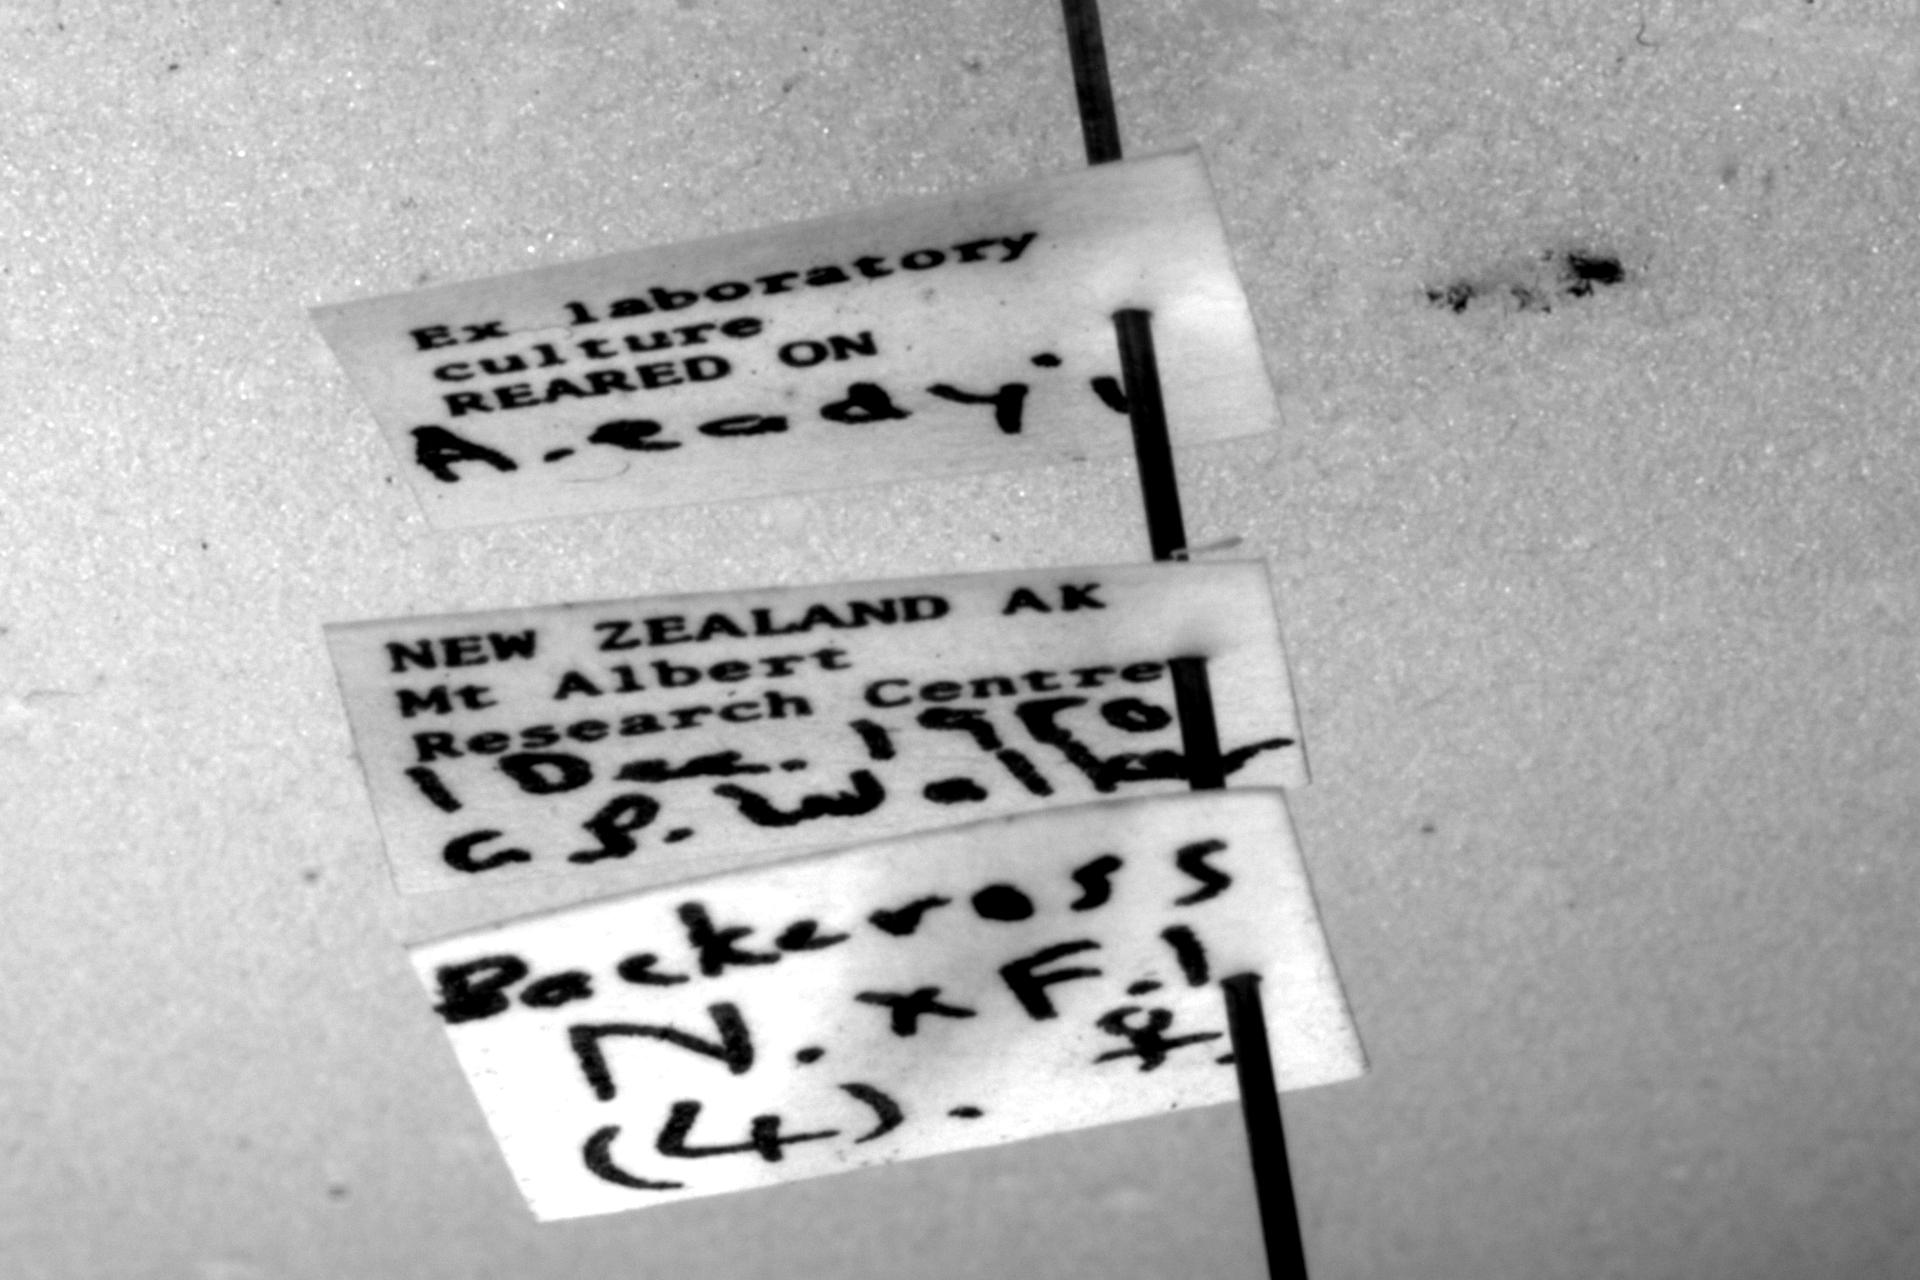 Ex laboratory
culture
REARED ON
A. eadyi
NEW ZEALAND AK
Mt Albert
Research Centre
1 Dec. 1980
G.P. Walker
Backcross
N. x F.1
(4). ♀.